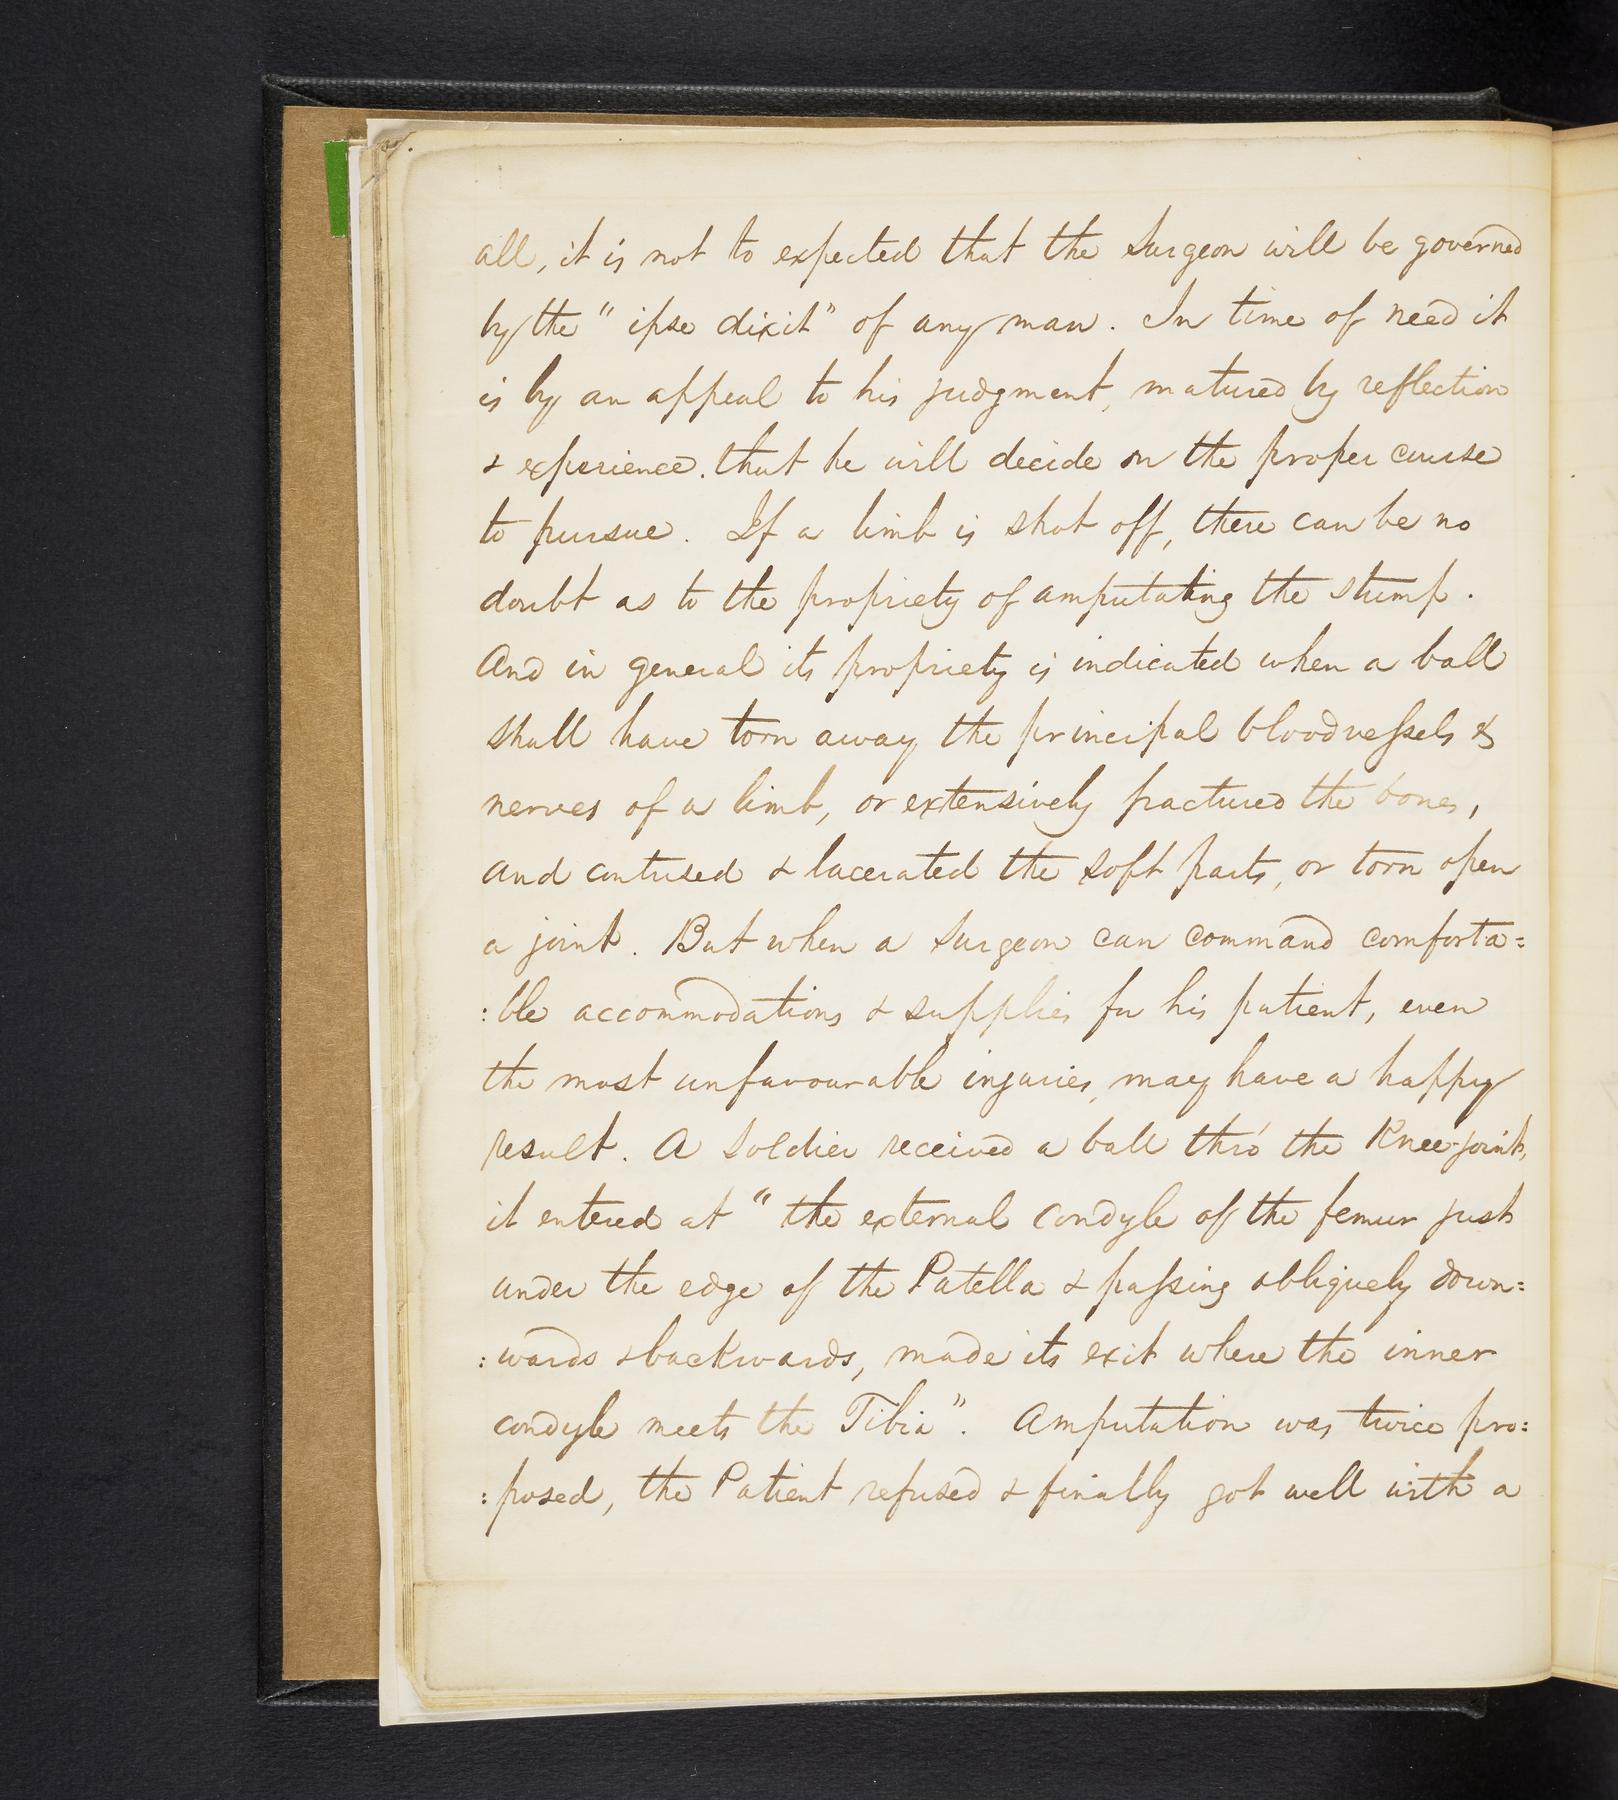 all, it is not to expected that the Surgeon will be governed
by the " ipse dixit" of any man. In time of need it
is by an appeal to his judgment, matured by reflection
& experience. that he will decide on the proper course
to pursue. If a limb is shot off, there can be no
doubt as to the propriety of amputating the stump.
And in general its propriety is indicated when a ball
shall have torn away the principal bloodvessels &
nerves of a limb, or extensively fractured the bones,
and contused & lacerated the soft parts, or torn open
a joint. But when a Surgeon can command comforta=
:ble accommodations & supplies for his patient, even
the most unfavourable injuries, may have a happy
result. A Soldier received a ball thro' the Knee-joint,
it entered at "the external Condyle of the femur just
under the edge of the Patella & passing obliquely down=
:wards & backwards, made its exit where the inner
condyle meets the Tibia". Amputation was twice pro:
:posed, the Patient refused & finally got well with a